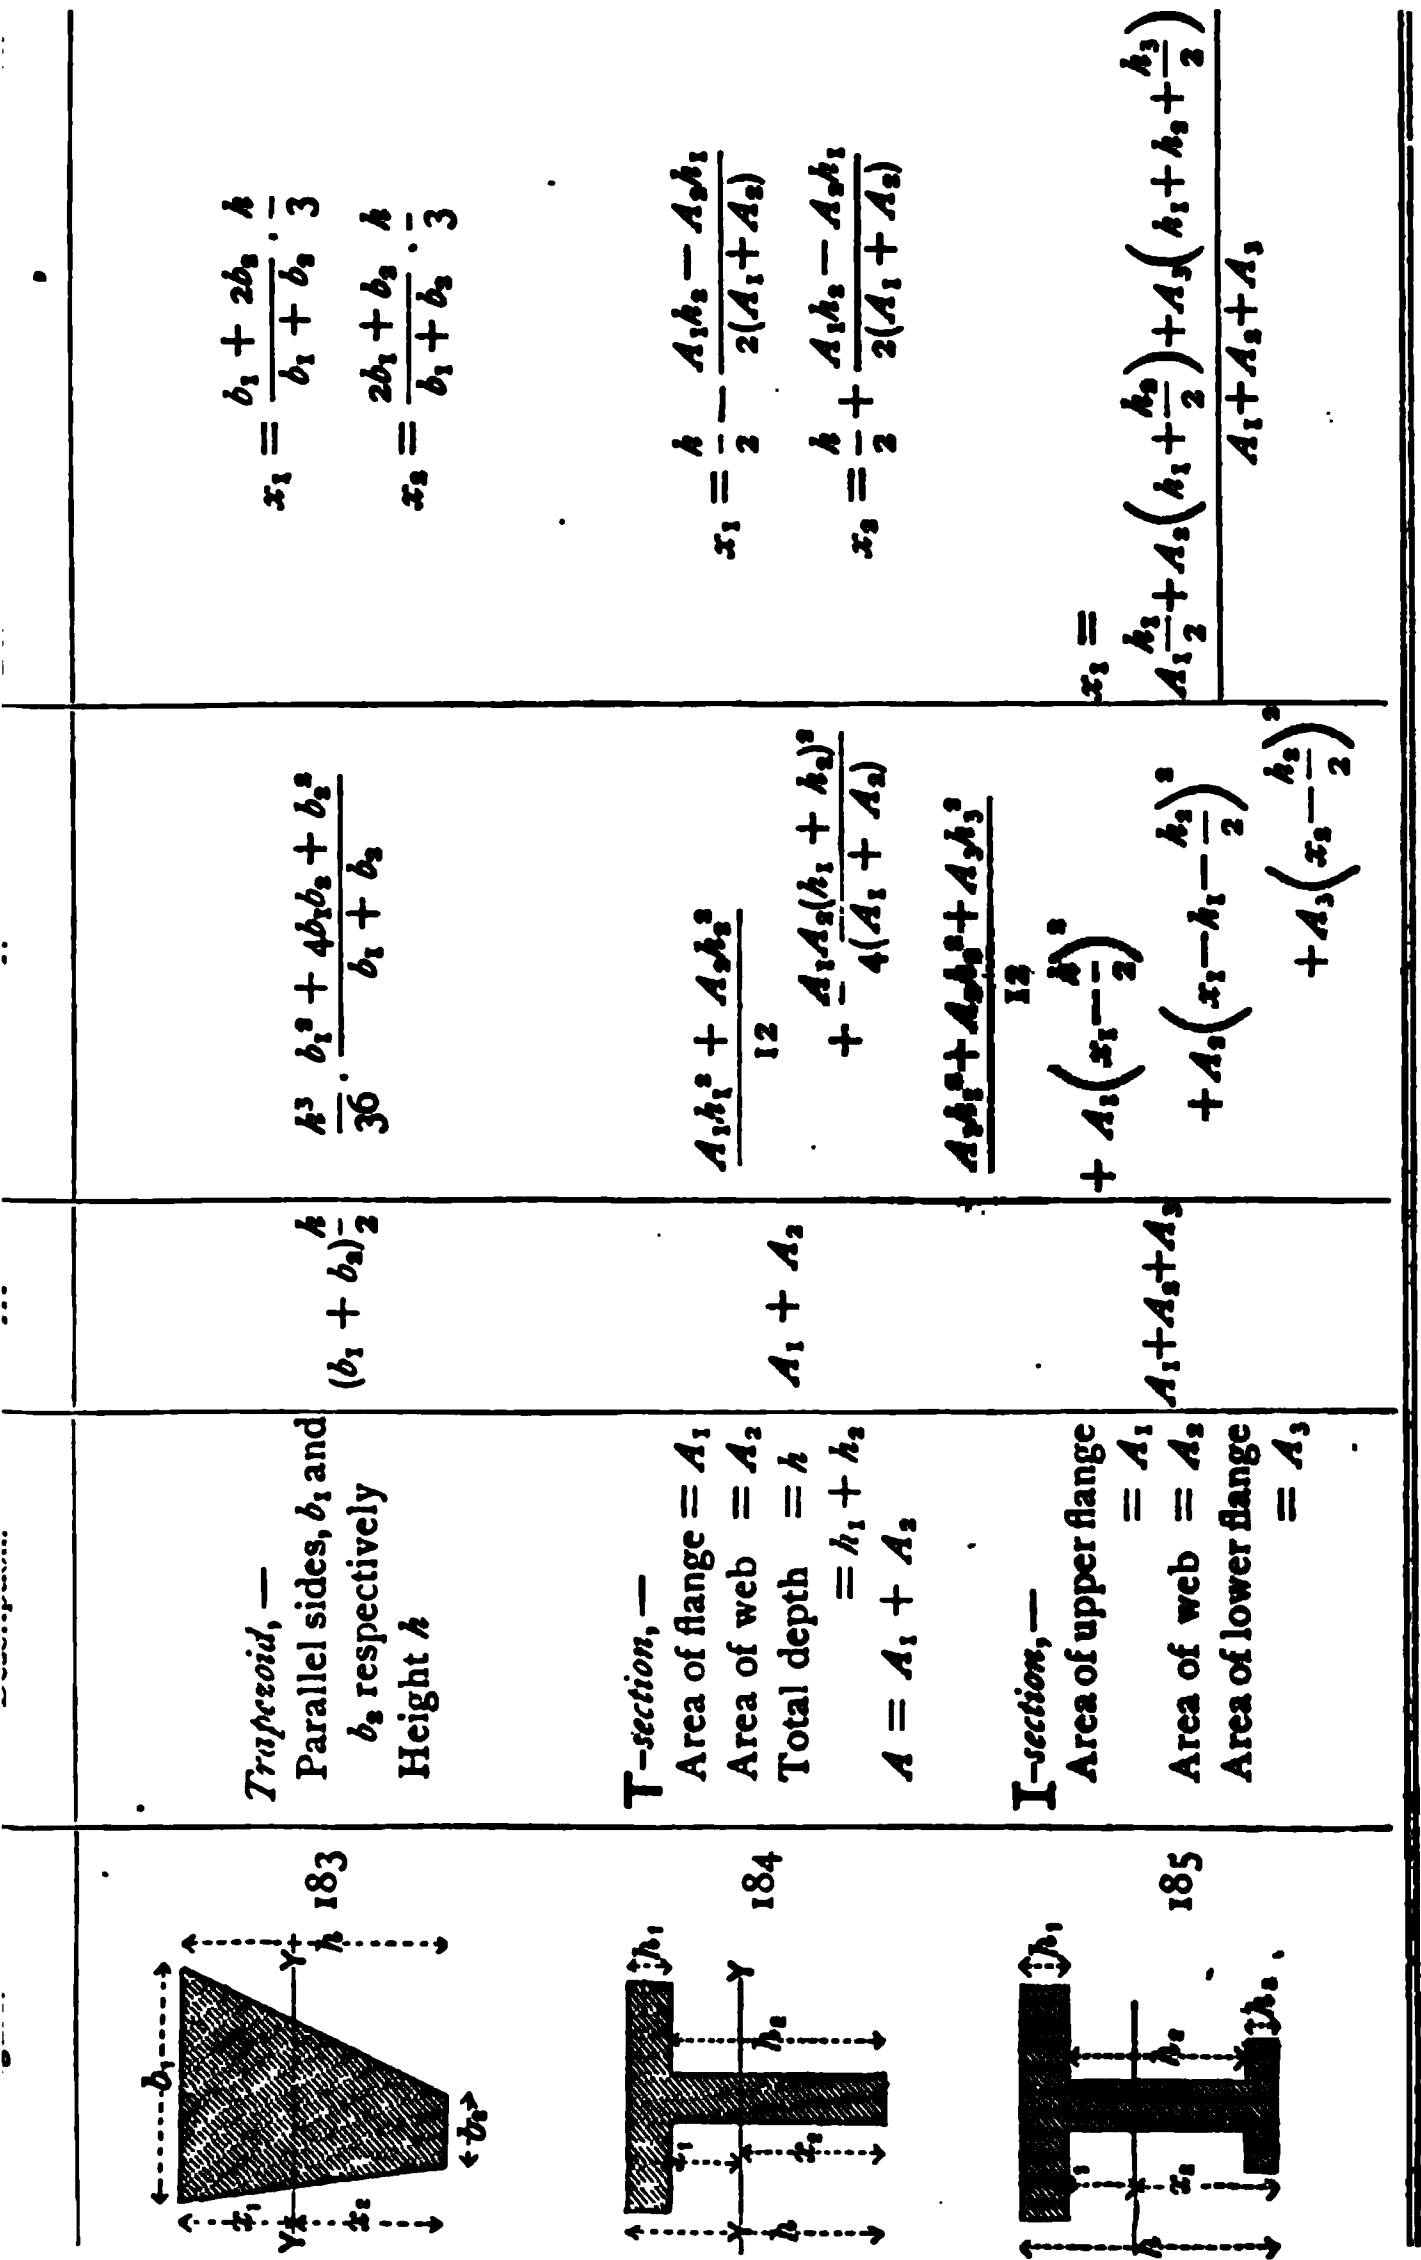 b₁
x₁
x₂
Y
Y
h
b₂
183
Trapezoid,—
Parallel sides, b₁ and
b₂ respectively
Height h
(b₁ + b₂) h/2
h³/36 · (b₁² + 4b₁b₂ + b₂²)/(b₁ + b₂)
x₁ = (b₁ + 2b₂)/(b₁ + b₂) · h/3
x₂ = (2b₁ + b₂)/(b₁ + b₂) · h/3
h₁
h₂
x₁
x₂
Y
Y
h
184
T-section,—
Area of flange = A₁
Area of web = A₂
Total depth = h
= h₁ + h₂
A = A₁ + A₂
A₁ + A₂
(A₁h₁² + A₂h₂²)/12
+ A₁A₂(h₁ + h₂)²/4(A₁ + A₂)
x₁ = h/2 − (A₁h₂ − A₂h₁)/2(A₁ + A₂)
x₂ = h/2 + (A₁h₂ − A₂h₁)/2(A₁ + A₂)
h₁
h₂
x₂
h
185
I-section,—
Area of upper flange
= A₁
Area of web = A₂
Area of lower flange
= A₃
A₁+A₂+A₃
(A₁h₁² + A₂h₂² + A₃h₃²)/12
+ A₁(x₁ − h/2)²
+ A₂(x₁ − h₁ − h₂/2)²
+ A₃(x₂ − h₂/2)²
x₁ =
(A₁ h₁/2 + A₂(h₁ + h₂/2) + A₃(h₁ + h₂ + h₃/2))/(A₁+A₂+A₃)